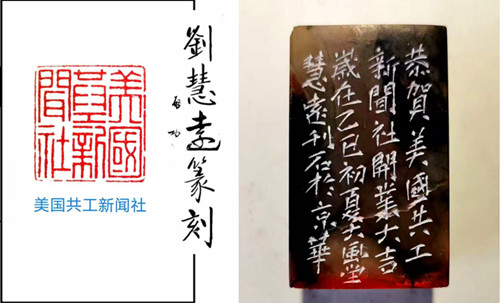 美國
共工新
聞社
美国共工新闻社
劉慧遠篆刻
启功
恭賀美國共工
新聞社開業大吉
歲在乙巳初夏大風堂
慧遠刊石於京華